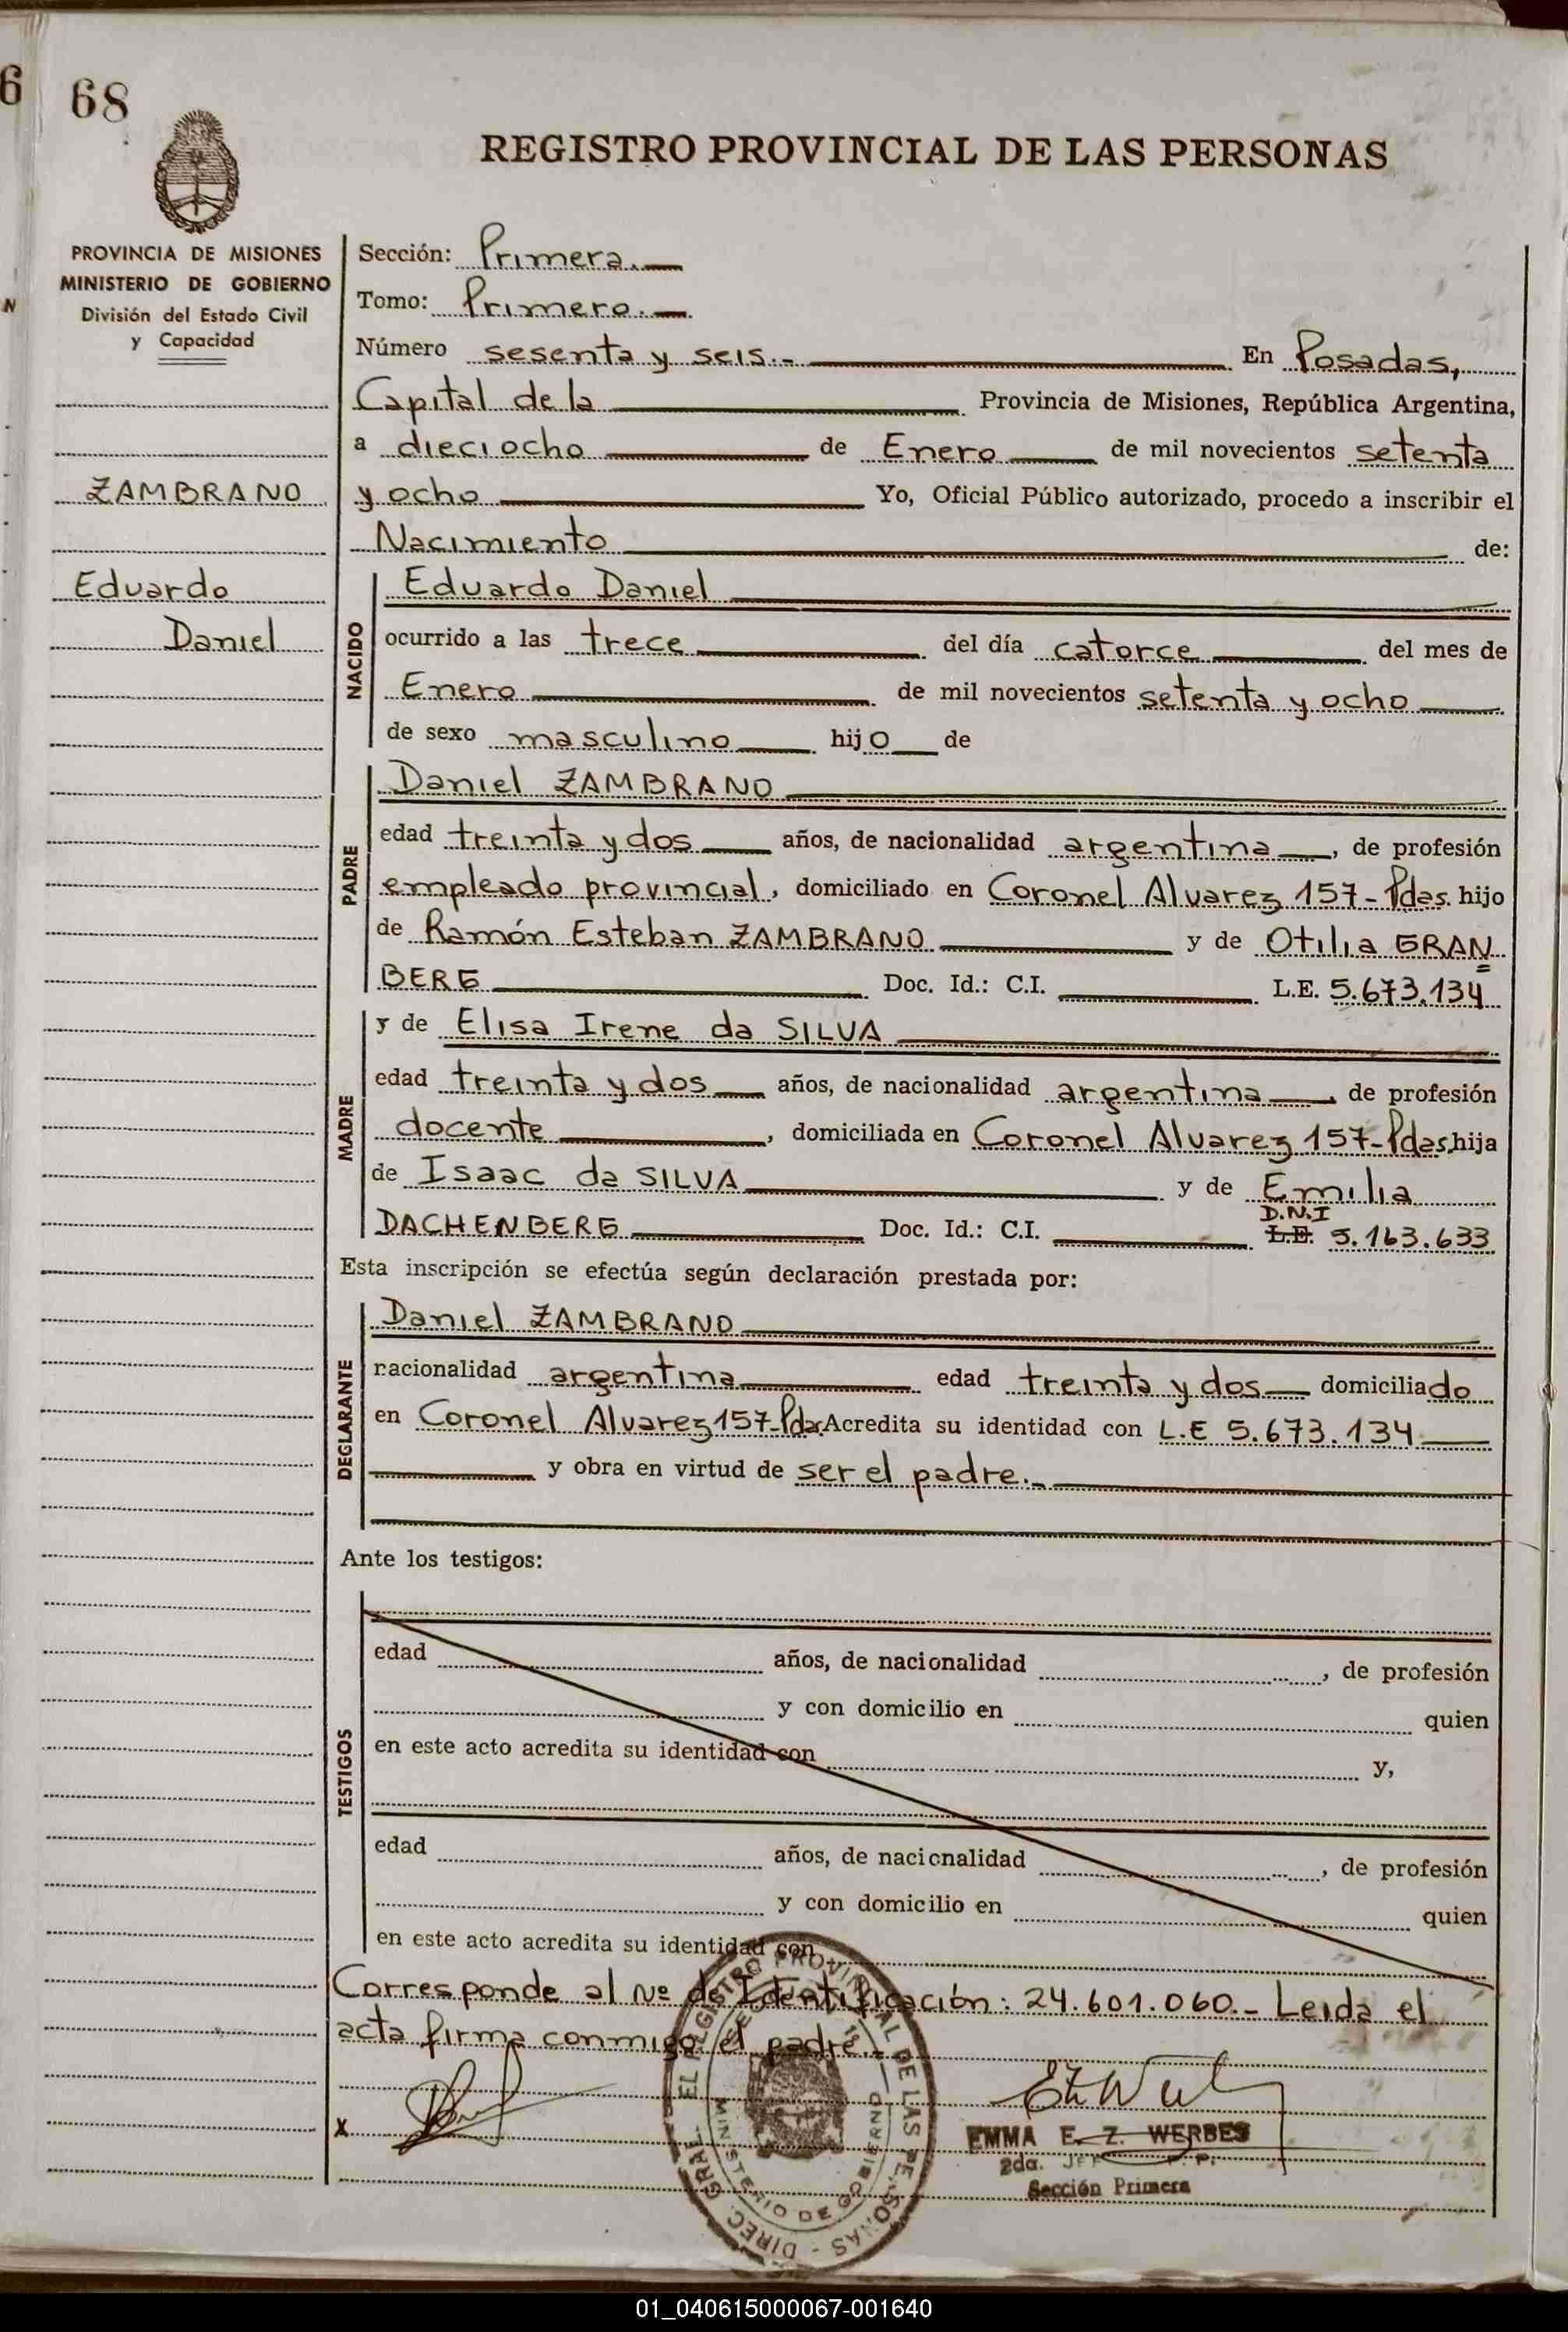 6
68
REGISTRO PROVINCIAL DE LAS PERSONAS
PROVINCIA DE MISIONES
MINISTERIO DE GOBIERNO
División del Estado Civil
y Capacidad
N
ZAMBRANO
Eduardo
Daniel
Sección: Primera.
Tomo: Primero.
Número sesenta y seis.- En Posadas,
Capital de la Provincia de Misiones, República Argentina,
a dieciocho de Enero de mil novecientos setenta
y ocho Yo, Oficial Público autorizado, procedo a inscribir el
Nacimiento de:
NACIDO
Eduardo Daniel
ocurrido a las trece del día catorce del mes de
Enero de mil novecientos setenta y ocho
de sexo masculino hijo de
PADRE
Daniel ZAMBRANO
edad treinta y dos años, de nacionalidad argentina, de profesión
empleado provincial, domiciliado en Coronel Alvarez 157-Pdas. hijo
de Ramón Esteban ZAMBRANO y de Otilia GRAN
BERG Doc. Id.: C.I. L.E. 5.673.134
MADRE
y de Elisa Irene da SILVA
edad treinta y dos años, de nacionalidad argentina, de profesión
docente, domiciliada en Coronel Alvarez 157-Pdas hija
de Isaac da SILVA y de Emilia
D.N.I
DACHENBERG Doc. Id.: C.I. L.E. 5.163.633
Esta inscripción se efectúa según declaración prestada por:
DECLARANTE
Daniel ZAMBRANO
nacionalidad argentina edad treinta y dos domiciliado
en Coronel Alvarez 157-Pdas. Acredita su identidad con L.E 5.673.134
y obra en virtud de ser el padre.-
Ante los testigos:
TESTIGOS
edad años, de nacionalidad , de profesión
y con domicilio en quien
en este acto acredita su identidad con y,
edad años, de nacionalidad , de profesión
y con domicilio en quien
en este acto acredita su identidad con
Corresponde al Nº de Identificación: 24.601.060.- Leida el
acta firma conmigo el padre.-
X
EMMA E. Z. WERBES
2da.
Sección Primera
DIREC. GRAL. EL REGISTRO PROVINCIAL DE LAS PERSONAS
MINISTERIO DE GOBIERNO
01_040615000067-001640